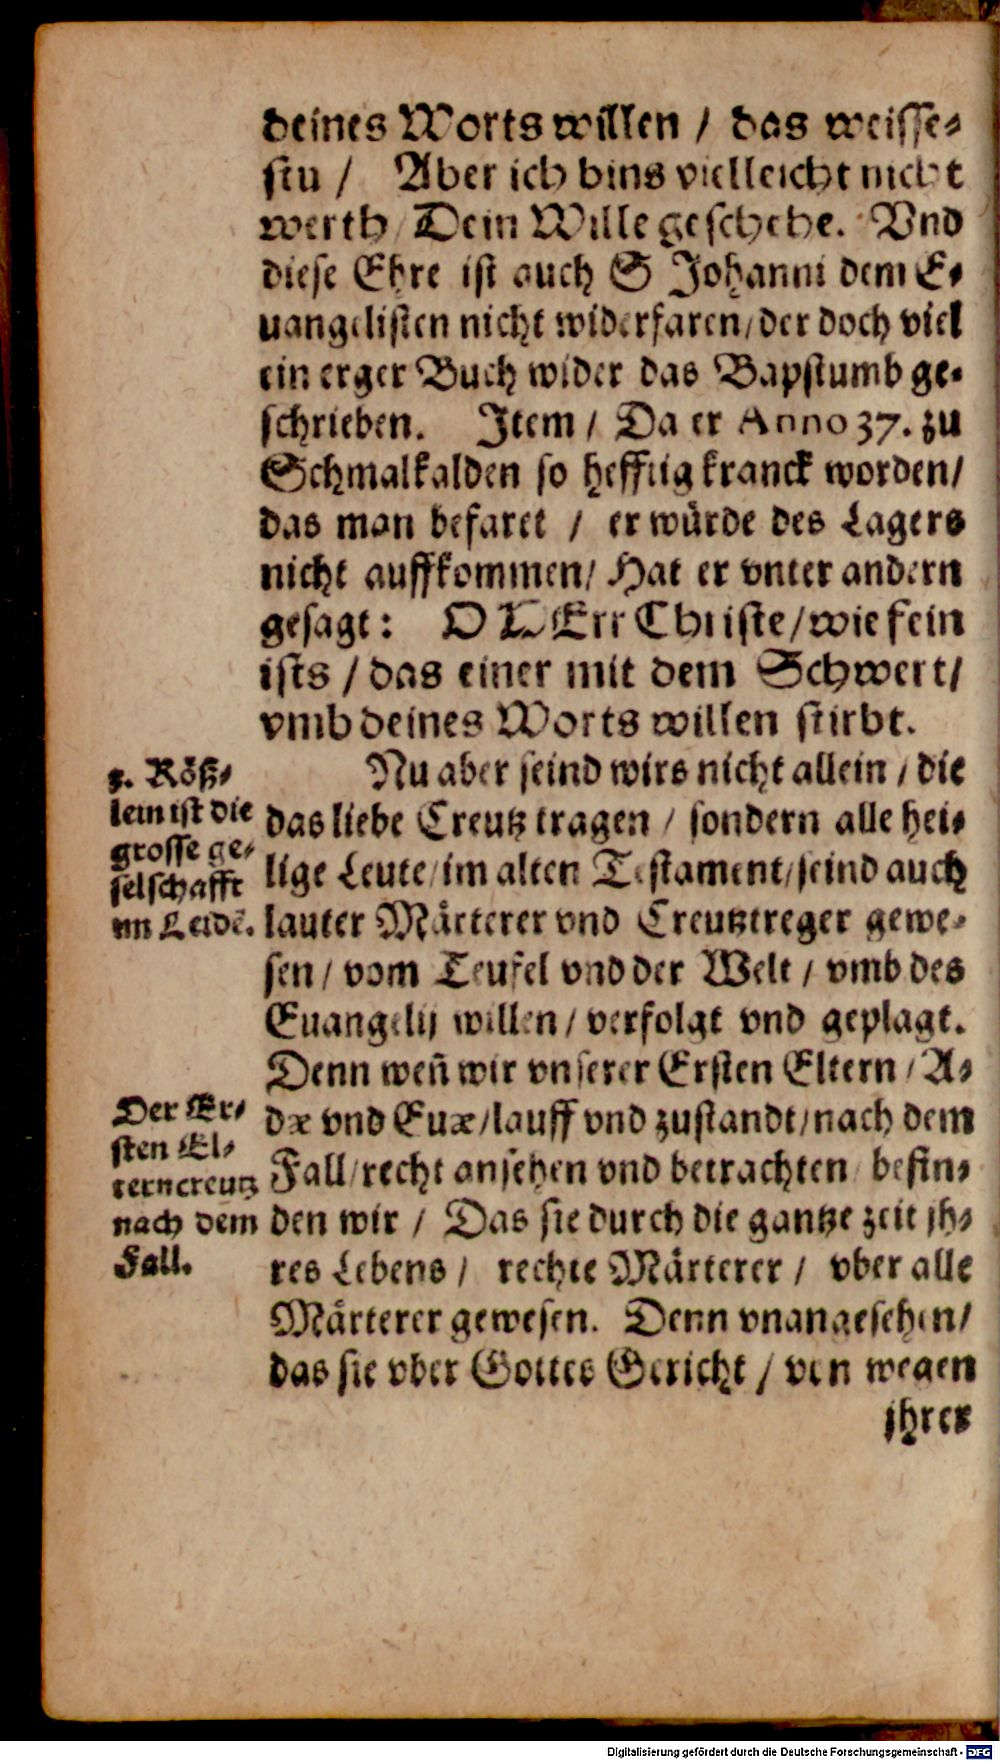 deines Worts willen / das weisse-
stu / Aber ich bins vielleicht nicht
werth / Dein Wille geschehe. Vnd
diese Ehre ist auch S Johanni dem E-
uangelisten nicht widerfaren / der doch viel
ein erger Buch wider das Bapstumb ge-
schrieben. Item / Da er Anno 37. zu
Schmalkalden so hefftig kranck worden /
das man befaret / er würde des Lagers
nicht auffkommen / Hat er vnter andern
gesagt: O HErr Christe / wie fein
ists / das einer mit dem Schwert /
vmb deines Worts willen stirbt.
Nu aber seind wirs nicht allein / die
das liebe Creutz tragen / sondern alle hei-
lige Leute / im alten Testament / seind auch
lauter Märterer vnd Creutztreger gewe-
sen / vom Teufel vnd der Welt / vmb des
Euangelij willen / verfolgt vnd geplagt.
Denn weñ wir vnserer Ersten Eltern / A-
dæ vnd Euæ / lauff vnd zustandt / nach dem
Fall / recht ansehen vnd betrachten / befin-
den wir / Das sie durch die gantze zeit jh-
res Lebens / rechte Märterer / vber alle
Märterer gewesen. Denn vnangesehen /
das sie vber Gottes Gericht / von wegen
jhrer
3. Röß-
lein ist die
grosse ge-
selschafft
im Leidē.
Der Er-
sten El-
tern creutz
nach dem
Fall.
Digitalisierung gefördert durch die Deutsche Forschungsgemeinschaft - DFG